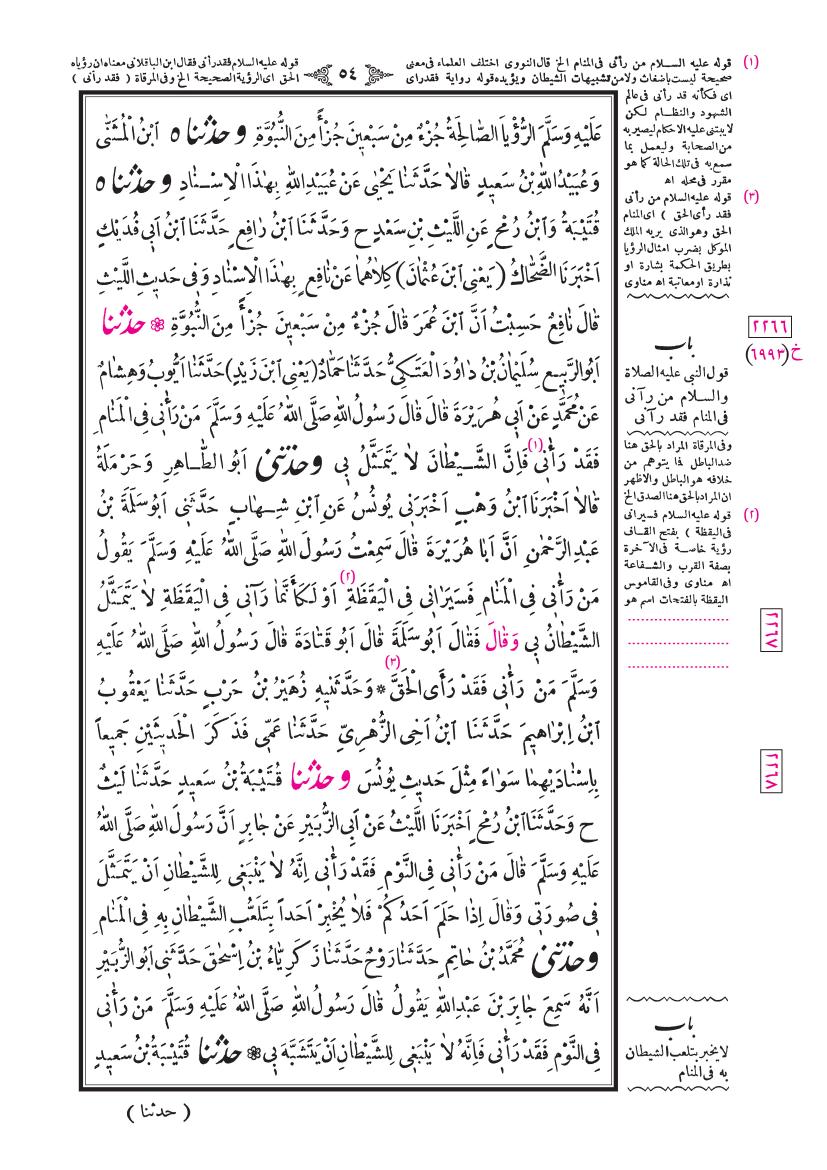 (١) قوله عليه السلام من رآنى فى المنام الخ قال النووى اختلف العلماء فى معنى
صحيحة ليست باضغاث ولا من تشبيهات الشيطان ويؤيده قوله رواية فقدراى
٥٤
قوله عليه السلام فقدرأنى فقال ابن الباقلانى معناه ان رؤياه
الحق اى الرؤية الصحيحة الخ وفى المرقاة ( فقد رأنى )
اى فكأنه قد رأنى فى عالم
الشهود والنظام لكن
لا يبتنى عليه الاحكام ليصير به
من الصحابة وليعمل بما
سمع به فى تلك الحالة كما هو
مقرر فى محله اه
(٣) قوله عليه السلام من رأنى
فقد رأى الحق ) اى المنام
الحق وهو الذى يريه الملك
الموكل بضرب امثال الرؤيا
بطريق الحكمة بشارة او
نذارة او معاتبة اه مناوى
٢٢٦٦
خ (٦٩٩٣)
باب
قول النبى عليه الصلاة
والسلام من رآنى
فى المنام فقد رآنى
وفى المرقاة المراد بالحق هنا
ضد الباطل فما يتوهم من
خلافه هو الباطل والاظهر
ان المراد بالحق هنا الصدق الخ
(٢) قوله عليه السلام فسيرانى
فى اليقظة ) بفتح القاف
رؤية خاصة فى الآخرة
بصفة القرب والشفاعة
اه مناوى وفى القاموس
اليقظة بالفتحات اسم هو
٢٢٦٧
٢٢٦٨
باب
لا يخبر بتلعب الشيطان
به فى المنام
عَلَيْهِ وَسَلَّمَ الرُّؤْيَا الصَّالِحَةُ جُزْءٌ مِنْ سَبْعِينَ جُزْأً مِنَ النُّبُوَّةِ وحدثناه ابْنُ الْمُثَنّٰى
وَعُبَيْدُاللهِ بْنُ سَعِيدٍ قَالَا حَدَّثَنَا يَحْيٰى عَنْ عُبَيْدِاللهِ بِهٰذَا الْاِسْنَادِ وحدثناه
قُتَيْبَةُ وَابْنُ رُمْحٍ عَنِ اللَّيْثِ بْنِ سَعْدٍ ح وَحَدَّثَنَا ابْنُ رَافِعٍ حَدَّثَنَا ابْنُ اَبِى فُدَيْكٍ
اَخْبَرَنَا الضَّحَّاكُ (يَعْنِى ابْنَ عُثْمَانَ) كِلَاهُمَا عَنْ نَافِعٍ بِهٰذَا الْاِسْنَادِ وَفِى حَدِيثِ اللَّيْثِ
قَالَ نَافِعٌ حَسِبْتُ اَنَّ ابْنَ عُمَرَ قَالَ جُزْءٌ مِنْ سَبْعِينَ جُزْأً مِنَ النُّبُوَّةِ ❁ حدثنا
اَبُوالرَّبِيعِ سُلَيْمَانُ بْنُ دَاوُدَ الْعَتَكِىُّ حَدَّثَنَا حَمَّادٌ (يَعْنِى ابْنَ زَيْدٍ) حَدَّثَنَا اَيُّوبُ وَهِشَامٌ
عَنْ مُحَمَّدٍ عَنْ اَبِى هُرَيْرَةَ قَالَ قَالَ رَسُولُ اللهِ صَلَّى اللهُ عَلَيْهِ وَسَلَّمَ مَنْ رَآنِى فِى الْمَنَامِ
فَقَدْ رَآنِى(١) فَاِنَّ الشَّيْطَانَ لَا يَتَمَثَّلُ بِى وحدثنى اَبُو الطَّاهِرِ وَحَرْمَلَةُ
قَالَا اَخْبَرَنَا ابْنُ وَهْبٍ اَخْبَرَنِى يُونُسُ عَنِ ابْنِ شِهَابٍ حَدَّثَنِى اَبُوسَلَمَةَ بْنُ
عَبْدِ الرَّحْمٰنِ اَنَّ اَبَا هُرَيْرَةَ قَالَ سَمِعْتُ رَسُولَ اللهِ صَلَّى اللهُ عَلَيْهِ وَسَلَّمَ يَقُولُ
مَنْ رَآنِى فِى الْمَنَامِ فَسَيَرَانِى فِى الْيَقَظَةِ(٢) اَوْ لَكَأَنَّمَا رَآنِى فِى الْيَقَظَةِ لَا يَتَمَثَّلُ
الشَّيْطَانُ بِى وَقَالَ فَقَالَ اَبُوسَلَمَةَ قَالَ اَبُو قَتَادَةَ قَالَ رَسُولُ اللهِ صَلَّى اللهُ عَلَيْهِ
وَسَلَّمَ مَنْ رَآنِى فَقَدْ رَأَى الْحَقَّ(٣) * وَحَدَّثَنِيهِ زُهَيْرُ بْنُ حَرْبٍ حَدَّثَنَا يَعْقُوبُ
ابْنُ اِبْرَاهِيمَ حَدَّثَنَا ابْنُ اَخِى الزُّهْرِىِّ حَدَّثَنَا عَمِّى فَذَكَرَ الْحَدِيثَيْنِ جَمِيعاً
بِاِسْنَادَيْهِمَا سَوَاءً مِثْلَ حَدِيثِ يُونُسَ وحدثنا قُتَيْبَةُ بْنُ سَعِيدٍ حَدَّثَنَا لَيْثٌ
ح وَحَدَّثَنَا ابْنُ رُمْحٍ اَخْبَرَنَا اللَّيْثُ عَنْ اَبِى الزُّبَيْرِ عَنْ جَابِرٍ اَنَّ رَسُولَ اللهِ صَلَّى اللهُ
عَلَيْهِ وَسَلَّمَ قَالَ مَنْ رَآنِى فِى النَّوْمِ فَقَدْ رَآنِى اِنَّهُ لَا يَنْبَغِى لِلشَّيْطَانِ اَنْ يَتَمَثَّلَ
فِى صُورَتِى وَقَالَ اِذَا حَلَمَ اَحَدُكُمْ فَلَا يُخْبِرْ اَحَداً بِتَلَعُّبِ الشَّيْطَانِ بِهِ فِى الْمَنَامِ
وحدثنى مُحَمَّدُ بْنُ حَاتِمٍ حَدَّثَنَا رَوْحٌ حَدَّثَنَا زَكَرِيَّاءُ بْنُ اِسْحٰقَ حَدَّثَنِى اَبُو الزُّبَيْرِ
اَنَّهُ سَمِعَ جَابِرَ بْنَ عَبْدِاللهِ يَقُولُ قَالَ رَسُولُ اللهِ صَلَّى اللهُ عَلَيْهِ وَسَلَّمَ مَنْ رَآنِى
فِى النَّوْمِ فَقَدْ رَآنِى فَاِنَّهُ لَا يَنْبَغِى لِلشَّيْطَانِ اَنْ يَتَشَبَّهَ بِى ❁ حدثنا قُتَيْبَةُ بْنُ سَعِيدٍ
( حدثنا )